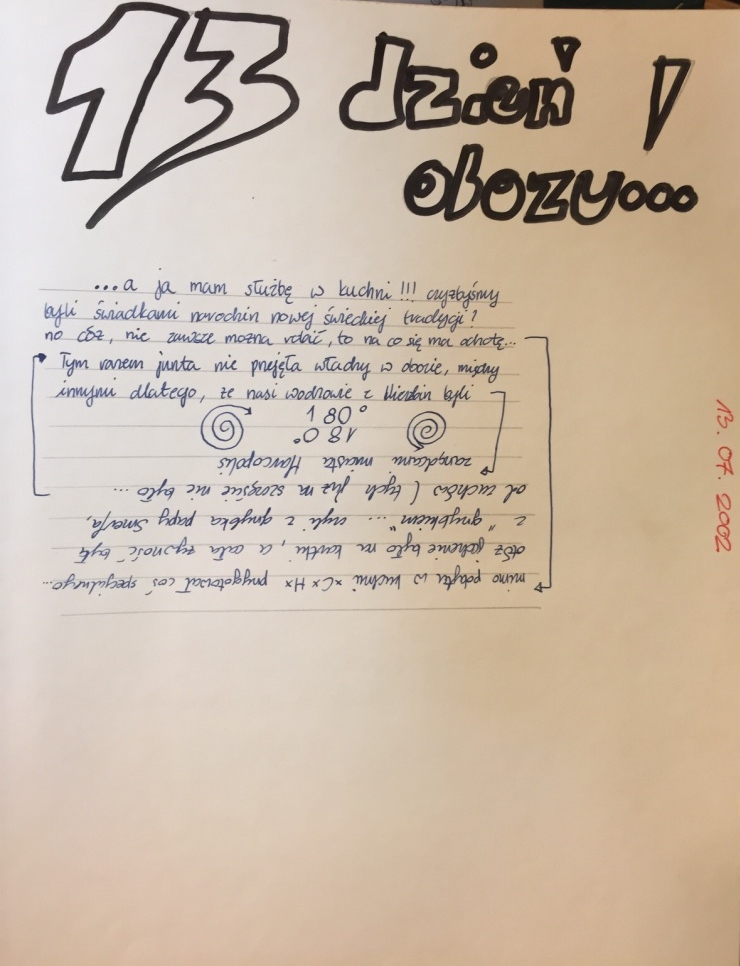 13 dzień !
obozu...
...a ja mam służbę w kuchni!!! czyżbyśmy
byli świadkami narodzin nowej świeckiej tradycji?
no cóż, nie zawsze można robić, to na co się ma ochotę...
mimo pobytu w kuchni ×C×H× przygotował coś specjalnego...
otóż jedzenie było na kartki, a cała żywność była
z "grzybkiem" ... czyli z grzybka papy smerfa,
od zuchów (tych już na szczęście nie było ...
Tym razem junta nie przejęła władzy w obozie, między
innymi dlatego, że nasi wodzowie z byli
180°
180°
zarządcami miasta Harcopolis
13.07.2002